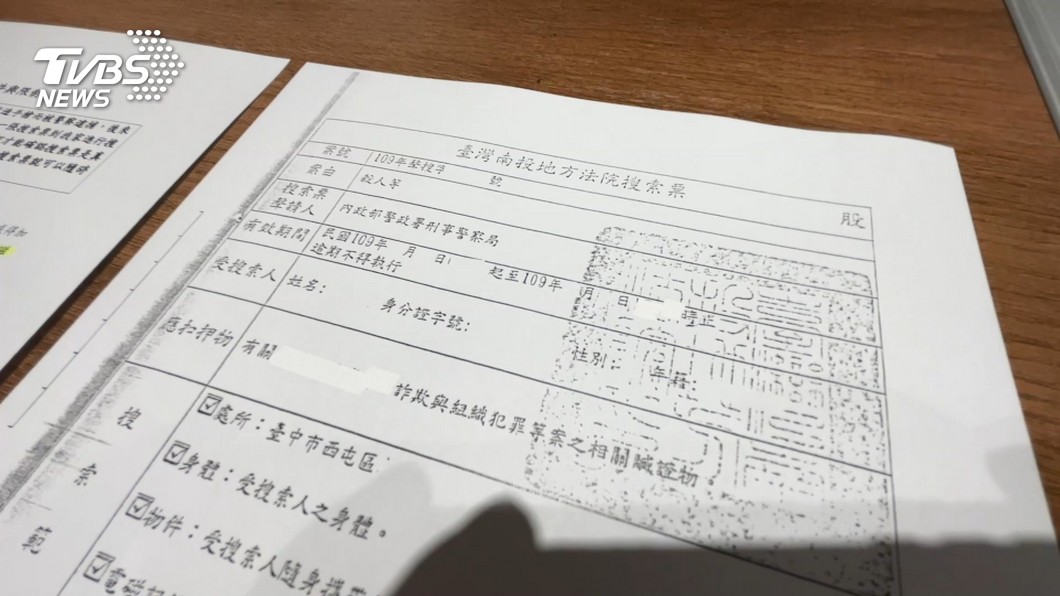 TVBS
NEWS
臺灣南投地方法院搜索票
股
案號
109年聲搜字
號
案由
殺人等
搜索票
聲請人
內政部警政署刑事警察局
有效期間
民國109年 月 日 起至109年 月 日 時止
逾期不得執行
受搜索人
姓名:
身分證字號:
性別:
年籍:
應扣押物
有關 詐欺與組織犯罪等案之相關贓證物。
搜索範
☑處所:臺中市西屯區
☑身體:受搜索人之身體。
☑物件:受搜索人隨身攜帶
☑電磁